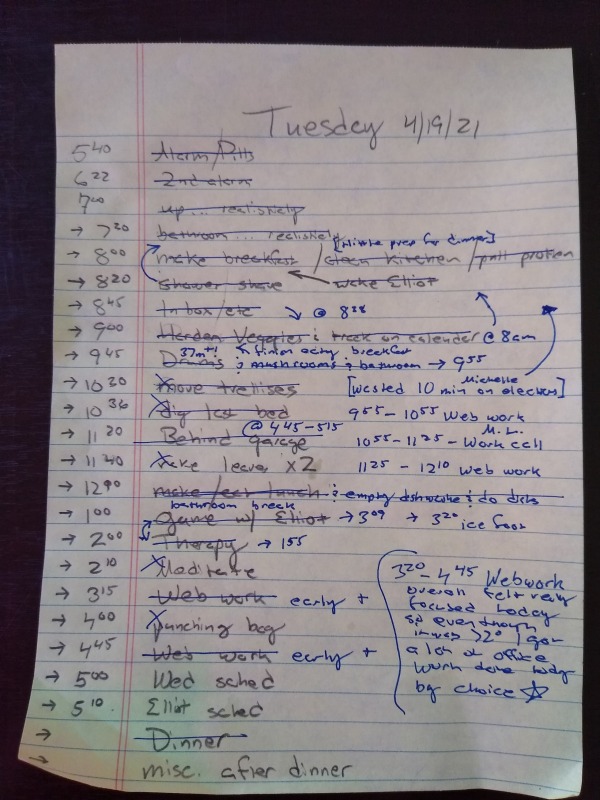 Tuesday 4/19/21
5 40 Alarm/Pitts
6 22 2nd alarm
7 00 up... realistically
→ 7 20 bathroom... realistically [little prep for dinner]
→ 8 00 make breakfast / clean kitchen / pull protien
→ 8 20 shower shave wake Elliot
→ 8 45 Inbox/etc @ 828
→ 9 00 Harden Veggies & track on calender @ 8am
37m+! finish eating breakfast
→ 9 45 Drums & mushrooms & bathroom → 9 55
Michelle
→ 10 20 move trellises [wasted 10 min on electors]
→ 10 36 dig last bed 9 55 - 10 55 Web work
@ 445-515 M.L.
→ 11 20 Behind garage 10 55 - 11 25 - Work call
→ 11 40 rake leaves x2 11 25 - 12 10 Web work
→ 12 90 make/eat lunch & empty dishwasher & do dishs
bathroom break
→ 1 00 Game w/ Elliot → 3 09 → 3 20 ice foot
→ 2 00 Therapy → 1 55
→ 2 10 Meditate
3 20 - 4 45 Webwork
→ 3 15 Web work early +
overall felt very
focused today
→ 4 00 punching bag
so eventhough
it was >2° I got
→ 4 45 Web work early +
a lot of office
work done today
by choice ☆
→ 5 00 Wed sched
→ 5 10 Elliot sched
→ Dinner
→ misc. after dinner